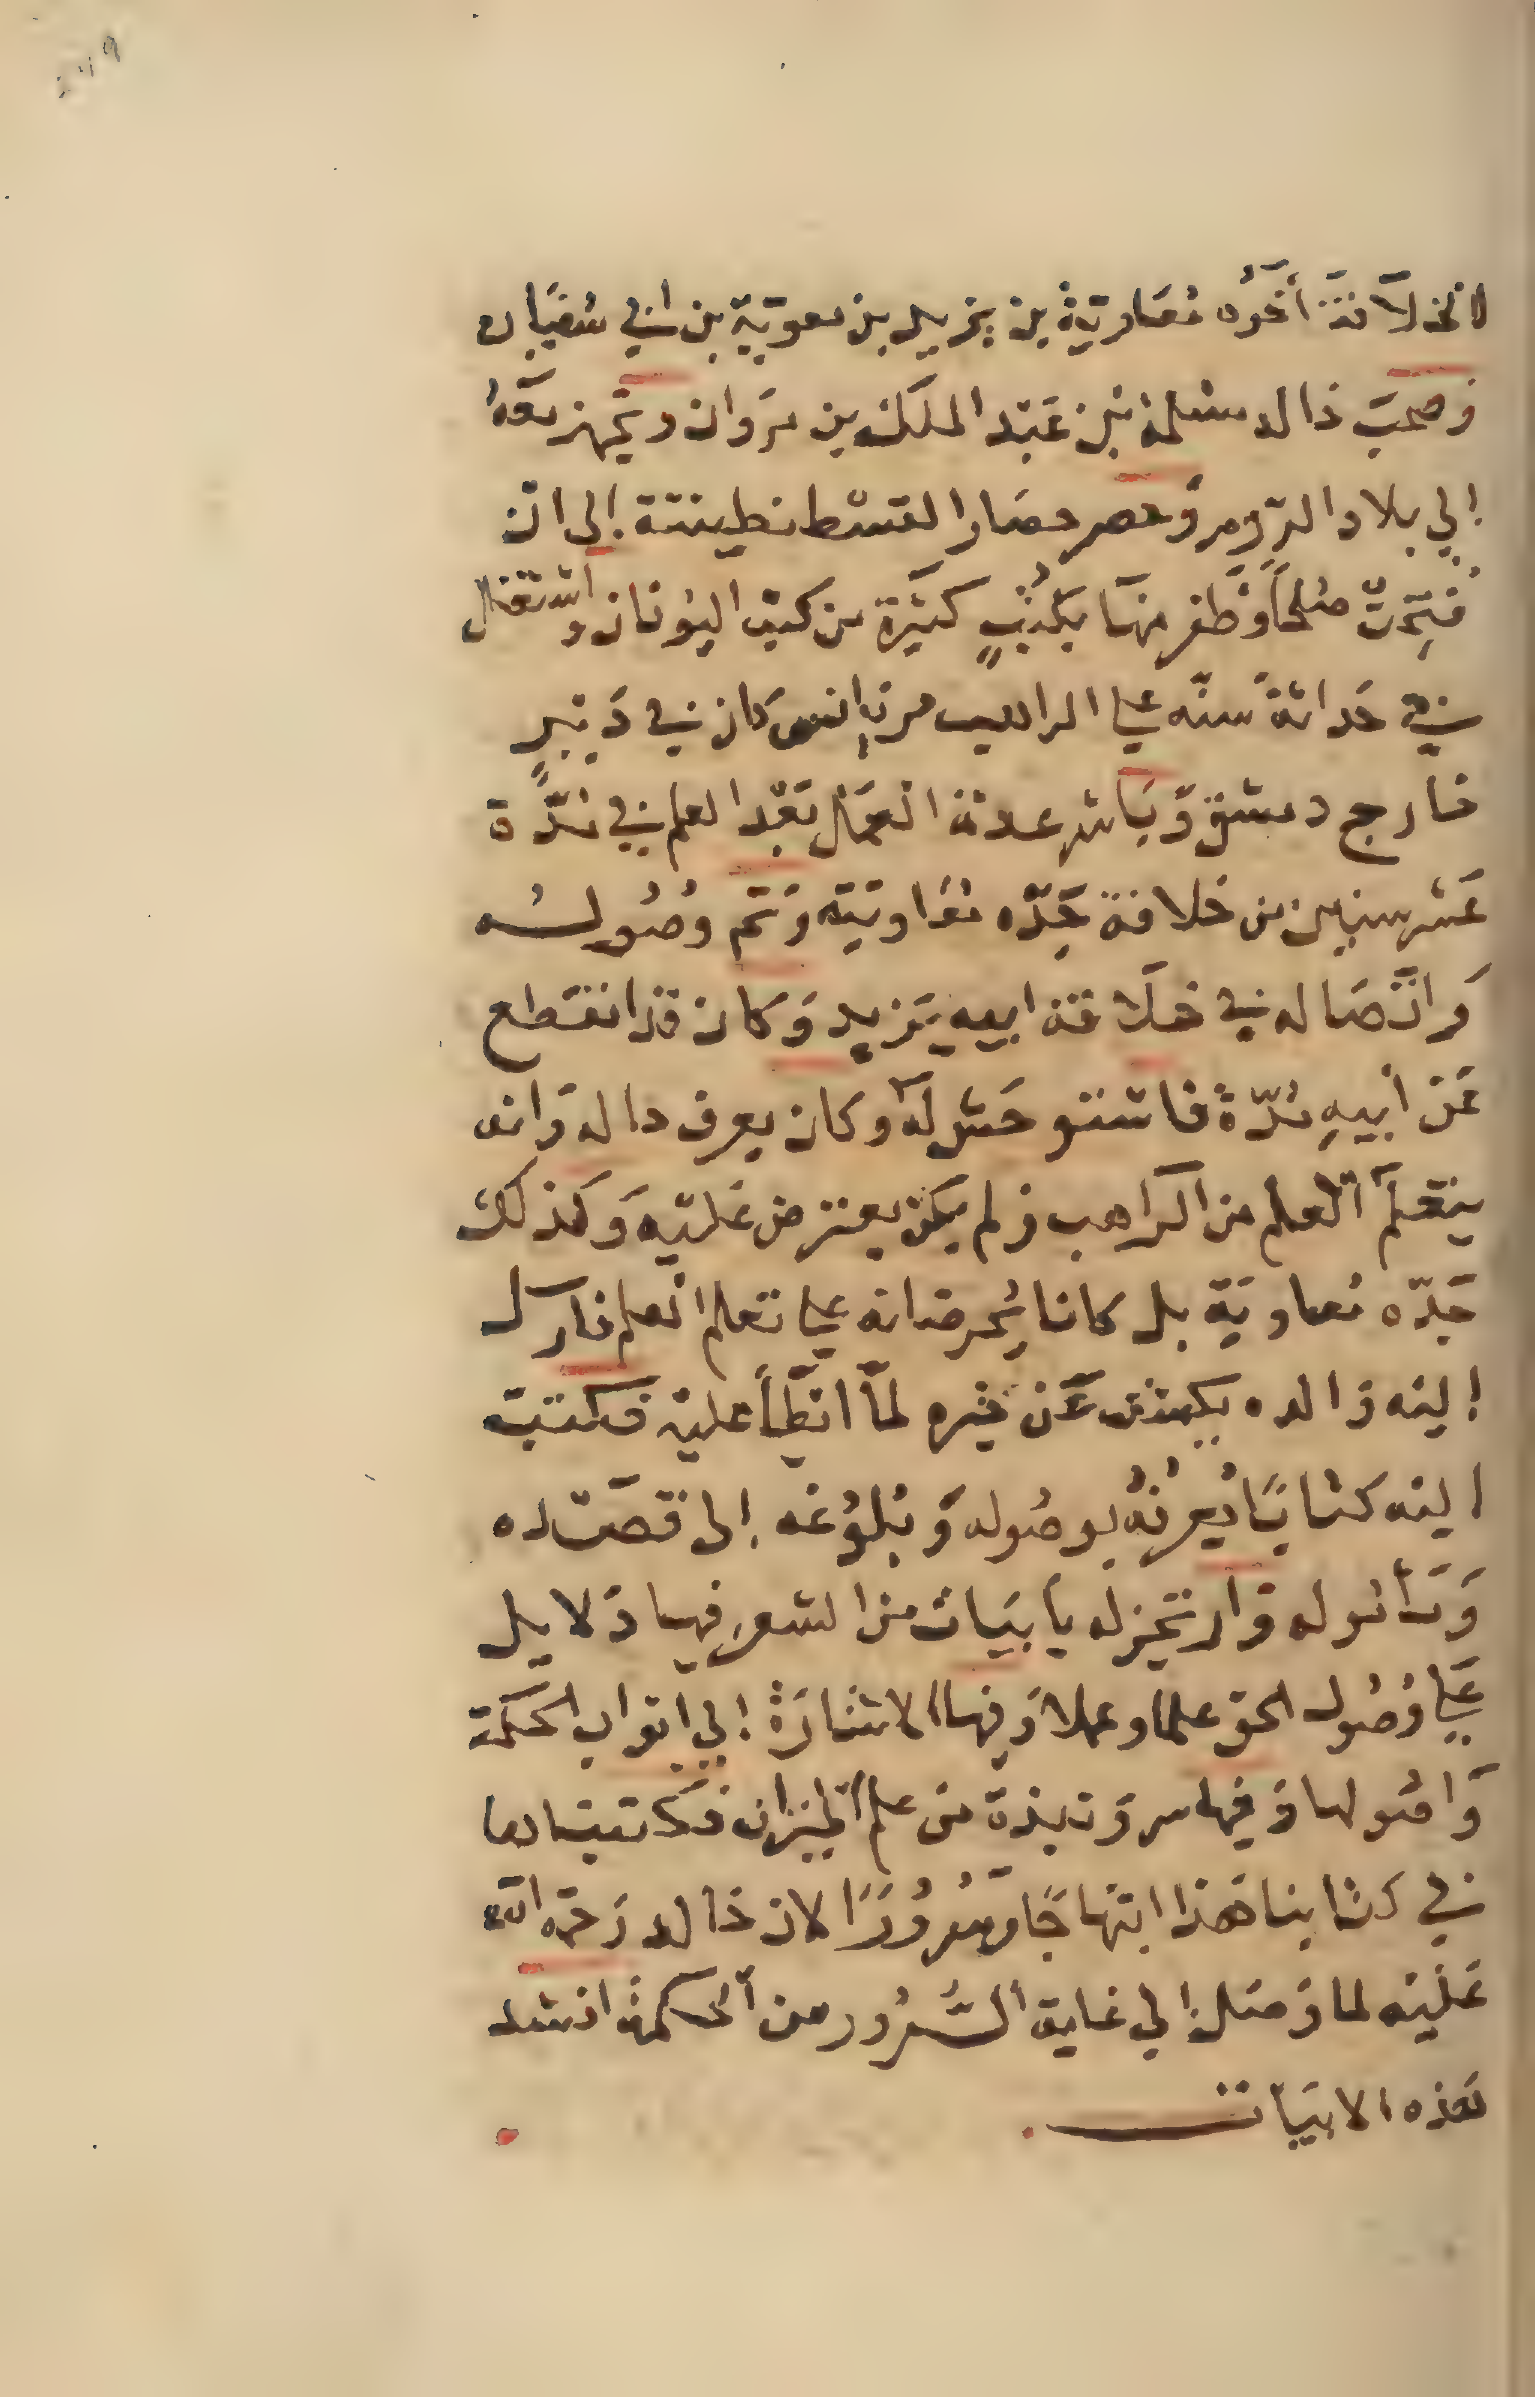 الخلافة أخوه معاوية بن يزيد بن معوية بن ابي سفيان
وصحب خالد مسلمة بن عبد الملك بن مروان وتجهز معه
إلي بلاد الروم وحصر حصار القسطنطينية إلى ان
فتحت صلحاً وظفر منها بكتبٍ كثيرة من كتب اليونان واشتغال
في حداثة سنه علي الراهب مريانس كان في ديرٍ
خارج دمشق وباشر عدة اعمال بعد العلم في مدة
عشر سنين من خلافة جده معاوية وتم وصوله
واتصاله في خلافة ابيه يزيد وكان قد انقطع
عن أبيه مدة فاستوحش له وكان يعرف حاله وانه
يتعلم العلم من الراهب ولم يكن يعترض عليه وكذلك
جده معاوية بل كانا يحرضانه علي تعلم العلم فارسل
اليه والده يكشف عن خبره لما ابطأ عليه فكتب
اليه كتاباً يعرفه بوصوله وبلوغه إلى قصده
وسأله وارتجز له بأبيات من الشعر فيها دلايل
علي وصول الحق علماً وعملا وفيها الاشارة إلي ابواب الحكمة
واصولها وفيها سر ونبذة من علم الميزان فكاتبناها
في كتابنا هذا ابتهاجاً وسروراً لان خالد رحمة الله
عليه لما وصل إلي غاية السرور من الحكمة انشد
هذه الابيات